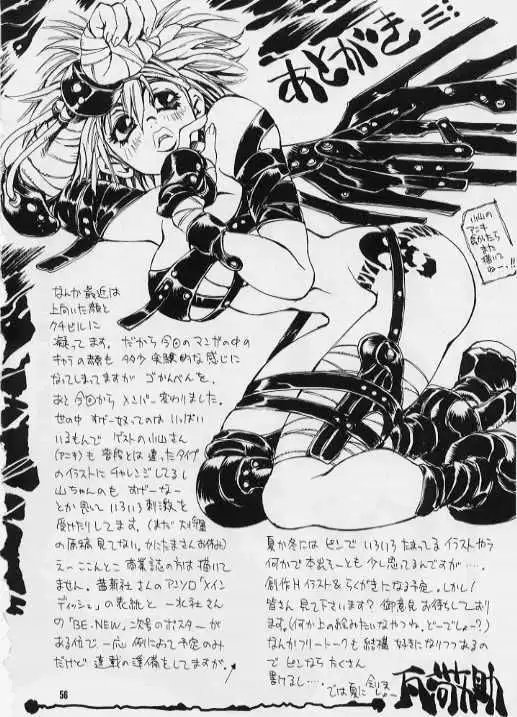 あとがき
小山の
アニキ
なんか最近は
上向いた顔と
クチビルに
凝ってます。だから今回のマンガの中の
キャラの顔も多少実験的な感じに
なってしまってますがごかんべんを。
あと今回からメンバー変わりました。
世の中すげー奴ってのはいっぱい
いるもんでゲストの小山さん
(アニキ)も普段とは違ったタイプ
のイラストにチャレンジしてるし
山ちゃんのもすげーなー
とか思っていろいろ刺激を
受けたりしてます。(まだ
の原稿見てない。かにたまさんお休み)
えーこんとこ商業誌の方は描いて
ません。茜新社さんのアンソロ「メイン
ディッシュ」の表紙と一水社さん
の「BE-NEW」二次号のポスターが
ある位で一応例によって予定のみ
だけど連載の準備をしてますが。
夏か冬にはピンでいろいろたまってるイラストやら
何かで本出そーとも少し思ってるんですが‥‥。
創作Hイラスト&らくがきになる予定。しかし!
皆さん見て下さいます?御意見お待ちしており
ます。(何か上のお飲みたいなやつね。どーでしょー?)
なんかフリートークも結構好きになりつつある
のでピンならたくさん
書けるし‥‥。では夏に会いましょー
56